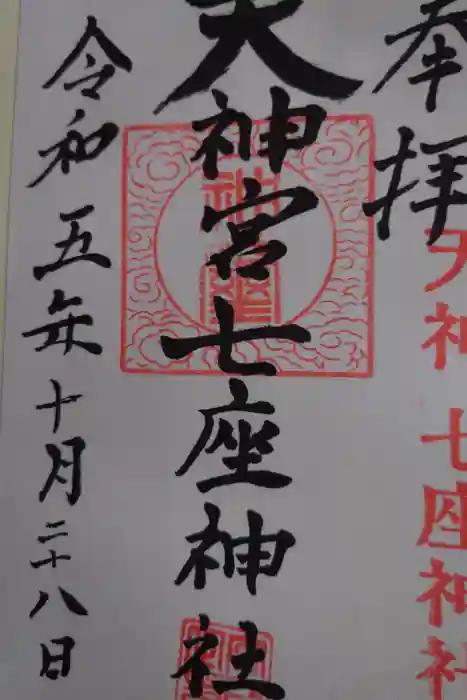 奉拝
天神 七座神社
天神宮七座神社
令和五年十月二十八日